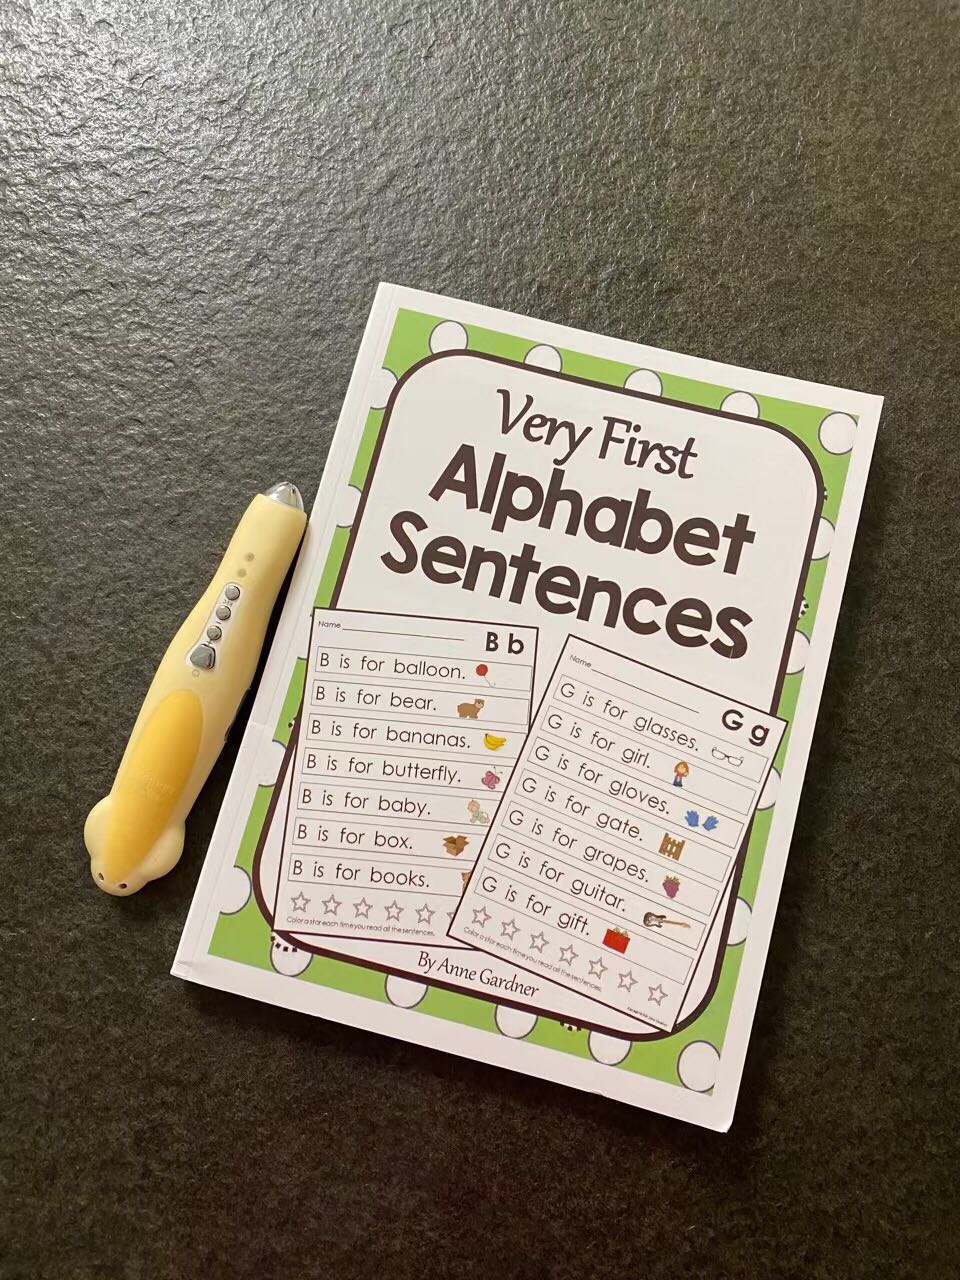 Very First
Alphabet
Sentences
Name
B b
B is for balloon.
B is for bear.
B is for bananas.
B is for butterfly.
B is for baby.
B is for box.
B is for books.
Color a star each time you read all the sentences.
Name
G g
G is for glasses.
G is for girl.
G is for gloves.
G is for gate.
G is for grapes.
G is for guitar.
G is for gift.
Color a star each time you read all the sentences.
By Anne Gardner